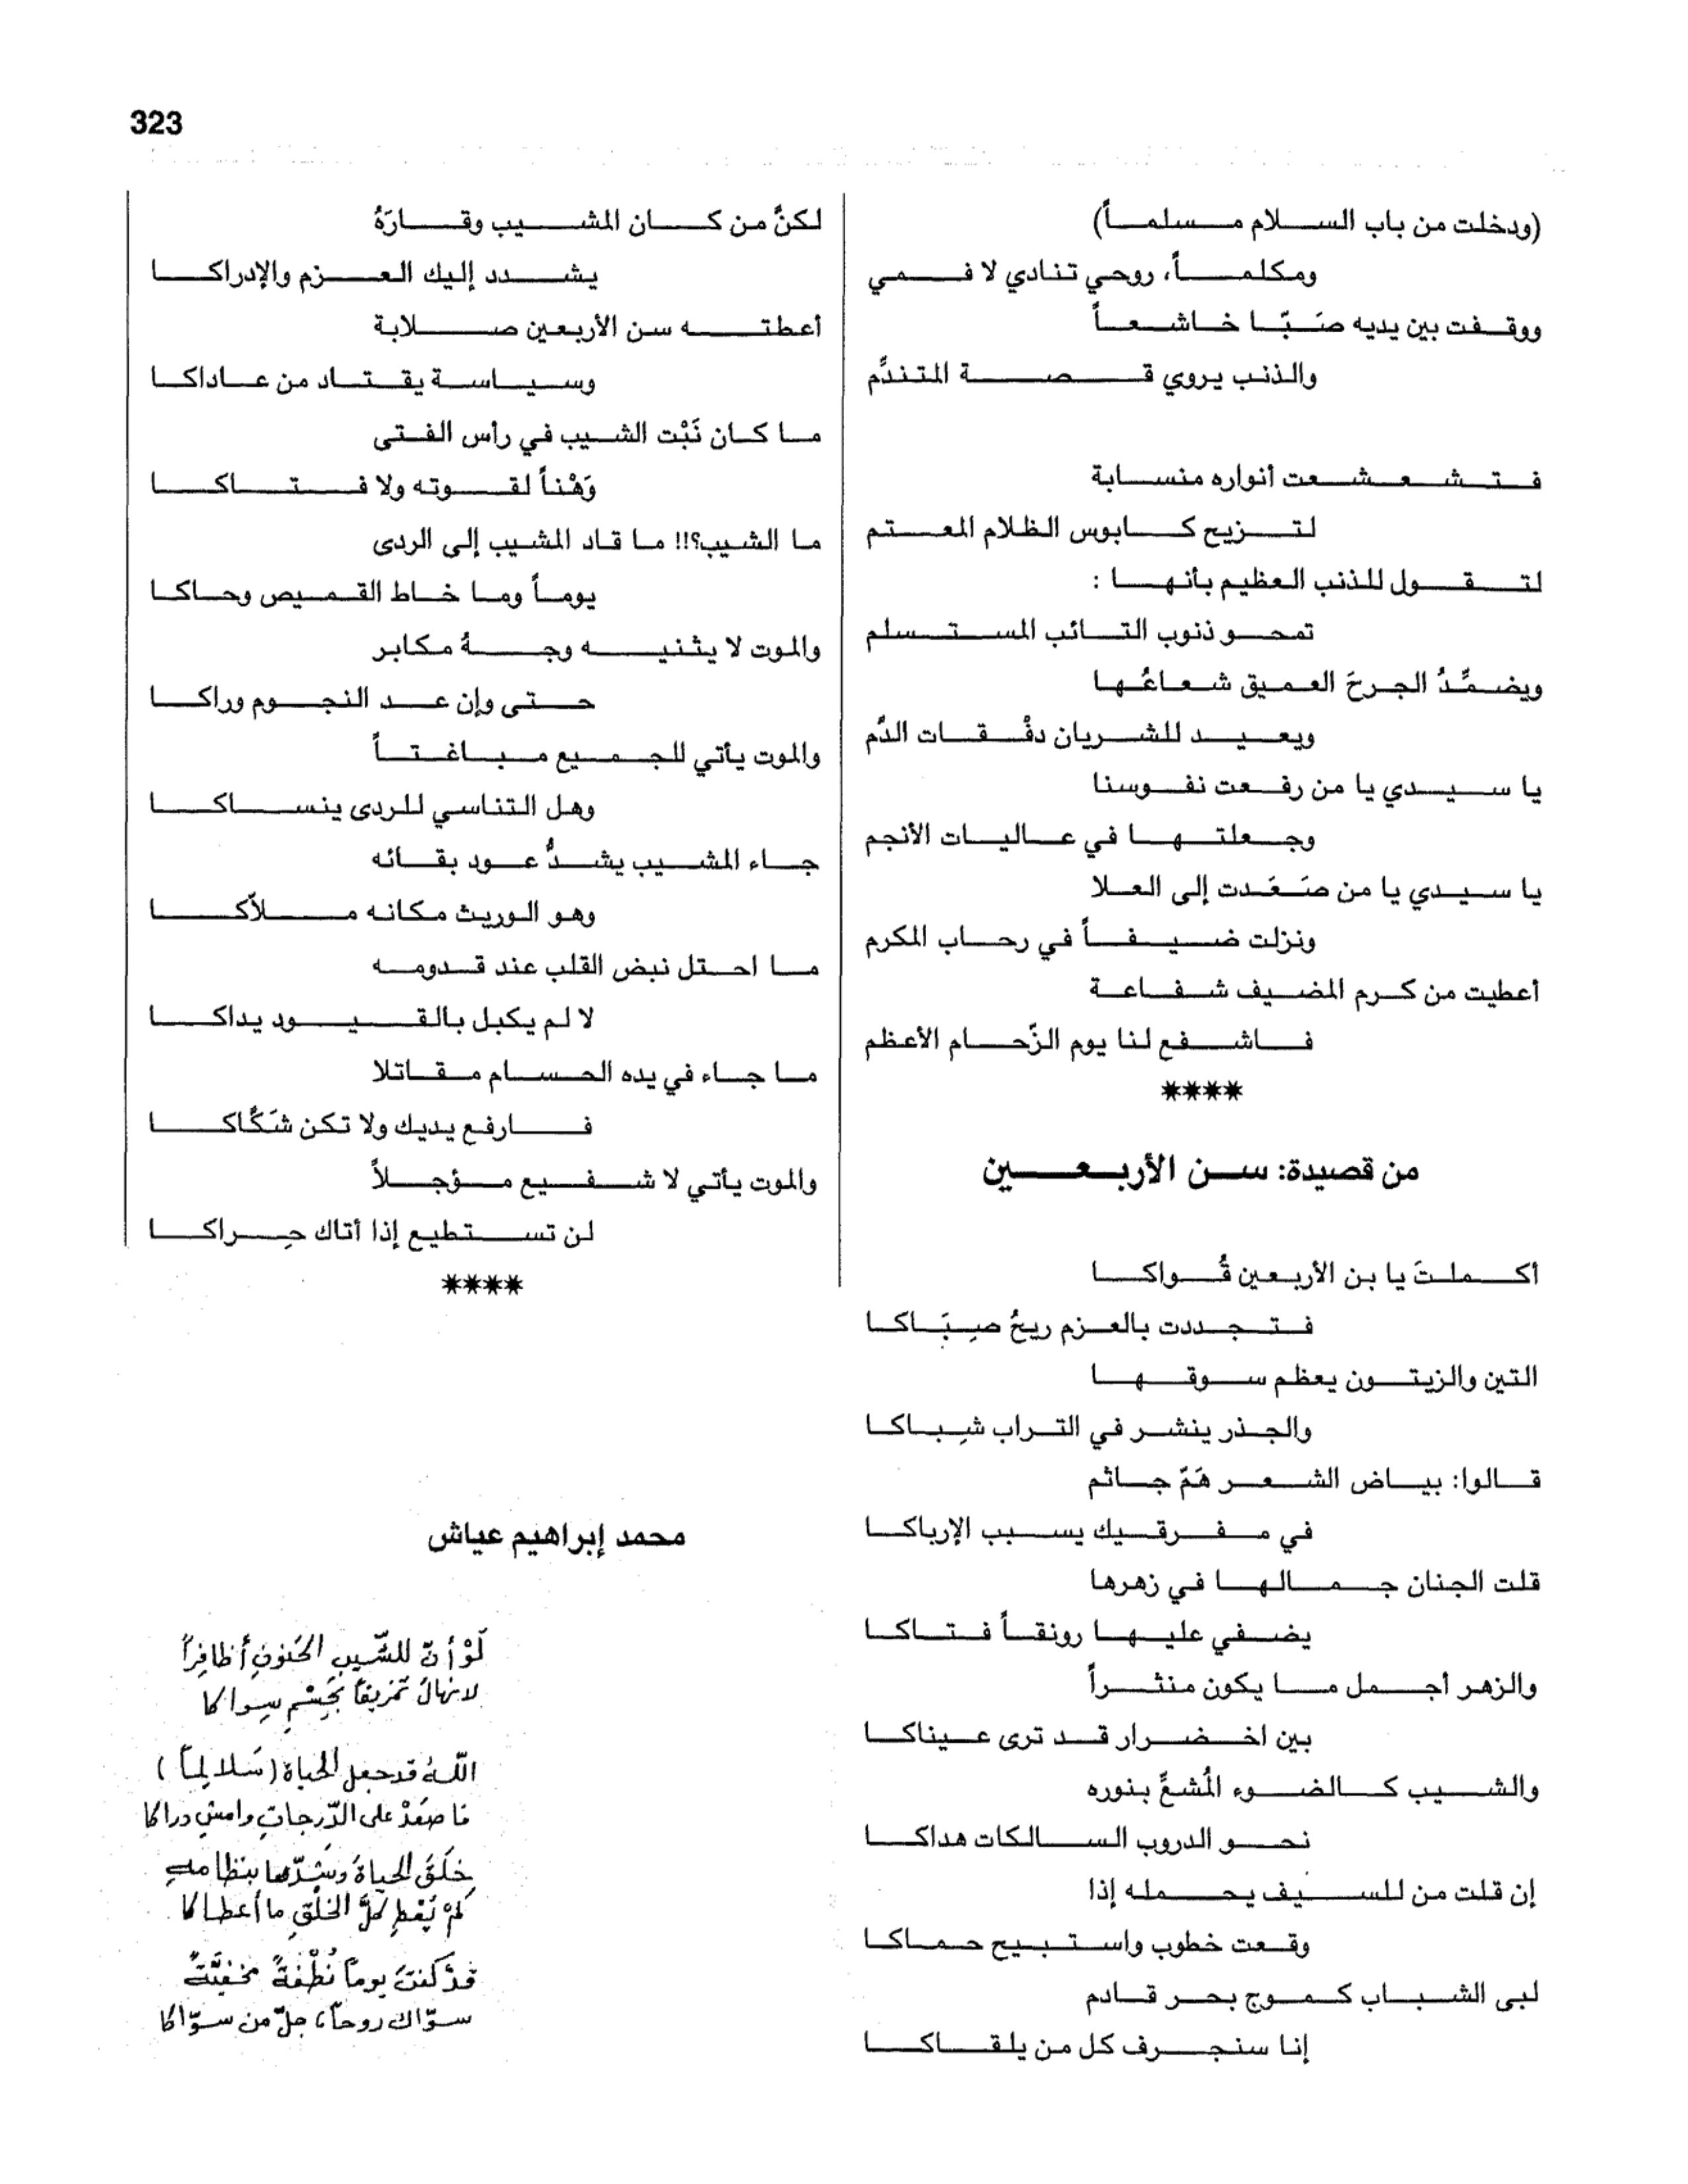 323
(ودخلت من باب السلام مسلماً)
ومكلماً، روحي تنادي لا فمي
ووقفت بين يديه صَبّا خاشعاً
والذنب يروي قصة المتندِّم
فتشعشعت أنواره منسابة
لتزيح كابوس الظلام المعتم
لتقول للذنب العظيم بأنها :
تمحو ذنوب التائب المستسلم
ويضمِّدُ الجرحَ العميق شعاعُها
ويعيد للشريان دفْقات الدَّم
يا سيدي يا من رفعت نفوسنا
وجعلتها في عاليات الأنجم
يا سيدي يا من صَعَدت إلى العلا
ونزلت ضيفاً في رحاب المكرم
أعطيت من كرم المضيف شفاعة
فاشفع لنا يوم الزّحام الأعظم
****
من قصيدة: سن الأربعين
أكملتَ يا بن الأربعين قُواكا
فتجددت بالعزم ريحُ صِبَاكا
التين والزيتون يعظم سوقها
والجذر ينشر في التراب شِباكا
قالوا: بياض الشعر هَمّ جاثم
في مفرقيك يسبب الإرباكا
قلت الجنان جمالها في زهرها
يضفي عليها رونقاً فتاكا
والزهر أجمل ما يكون منثراً
بين اخضرار قد ترى عيناكا
والشيب كالضوء المُشعِّ بنوره
نحو الدروب السالكات هداكا
إن قلت من للسيف يحمله إذا
وقعت خطوب واستبيح حماكا
لبى الشباب كموج بحر قادم
إنا سنجرف كل من يلقاكا
لكنَّ من كان المشيب وقارَهُ
يشدد إليك العزم والإدراكا
أعطته سن الأربعين صلابة
وسياسة يقتاد من عاداكا
ما كان نَبْت الشيب في رأس الفتى
وَهْناً لقوته ولا فتاكا
ما الشيب؟!! ما قاد المشيب إلى الردى
يوماً وما خاط القميص وحاكا
والموت لا يثنيه وجهُ مكابر
حتى وإن عد النجوم وراكا
والموت يأتي للجميع مباغتاً
وهل التناسي للردى ينساكا
جاء المشيب يشدُّ عود بقائه
وهو الوريث مكانه ملاّكا
ما احتل نبض القلب عند قدومه
لا لم يكبل بالقيود يداكا
ما جاء في يده الحسام مقاتلا
فارفع يديك ولا تكن شَكَّاكا
والموت يأتي لا شفيع مؤجلاً
لن تستطيع إذا أتاك حِراكا
****
محمد إبراهيم عياش
لَوْ أنّ للشّيبِ الحَنونِ أظافِراً
لانهالَ تمزيقاً بجَسْمٍ سِواكا
اللّهُ قد جعل الحياة (سَلالِماً)
فاصعَدْ على الدّرجاتِ وامشِ دراكا
خلَقَ الحياةَ وشدّها بنظامه
لمْ يُعْطِ كلَّ الخلْقِ ما أعطاكا
قدْ كنتَ يوماً نُطْفةً مخفيَّةً
سوّاك روحاً، جلّ من سوّاكا